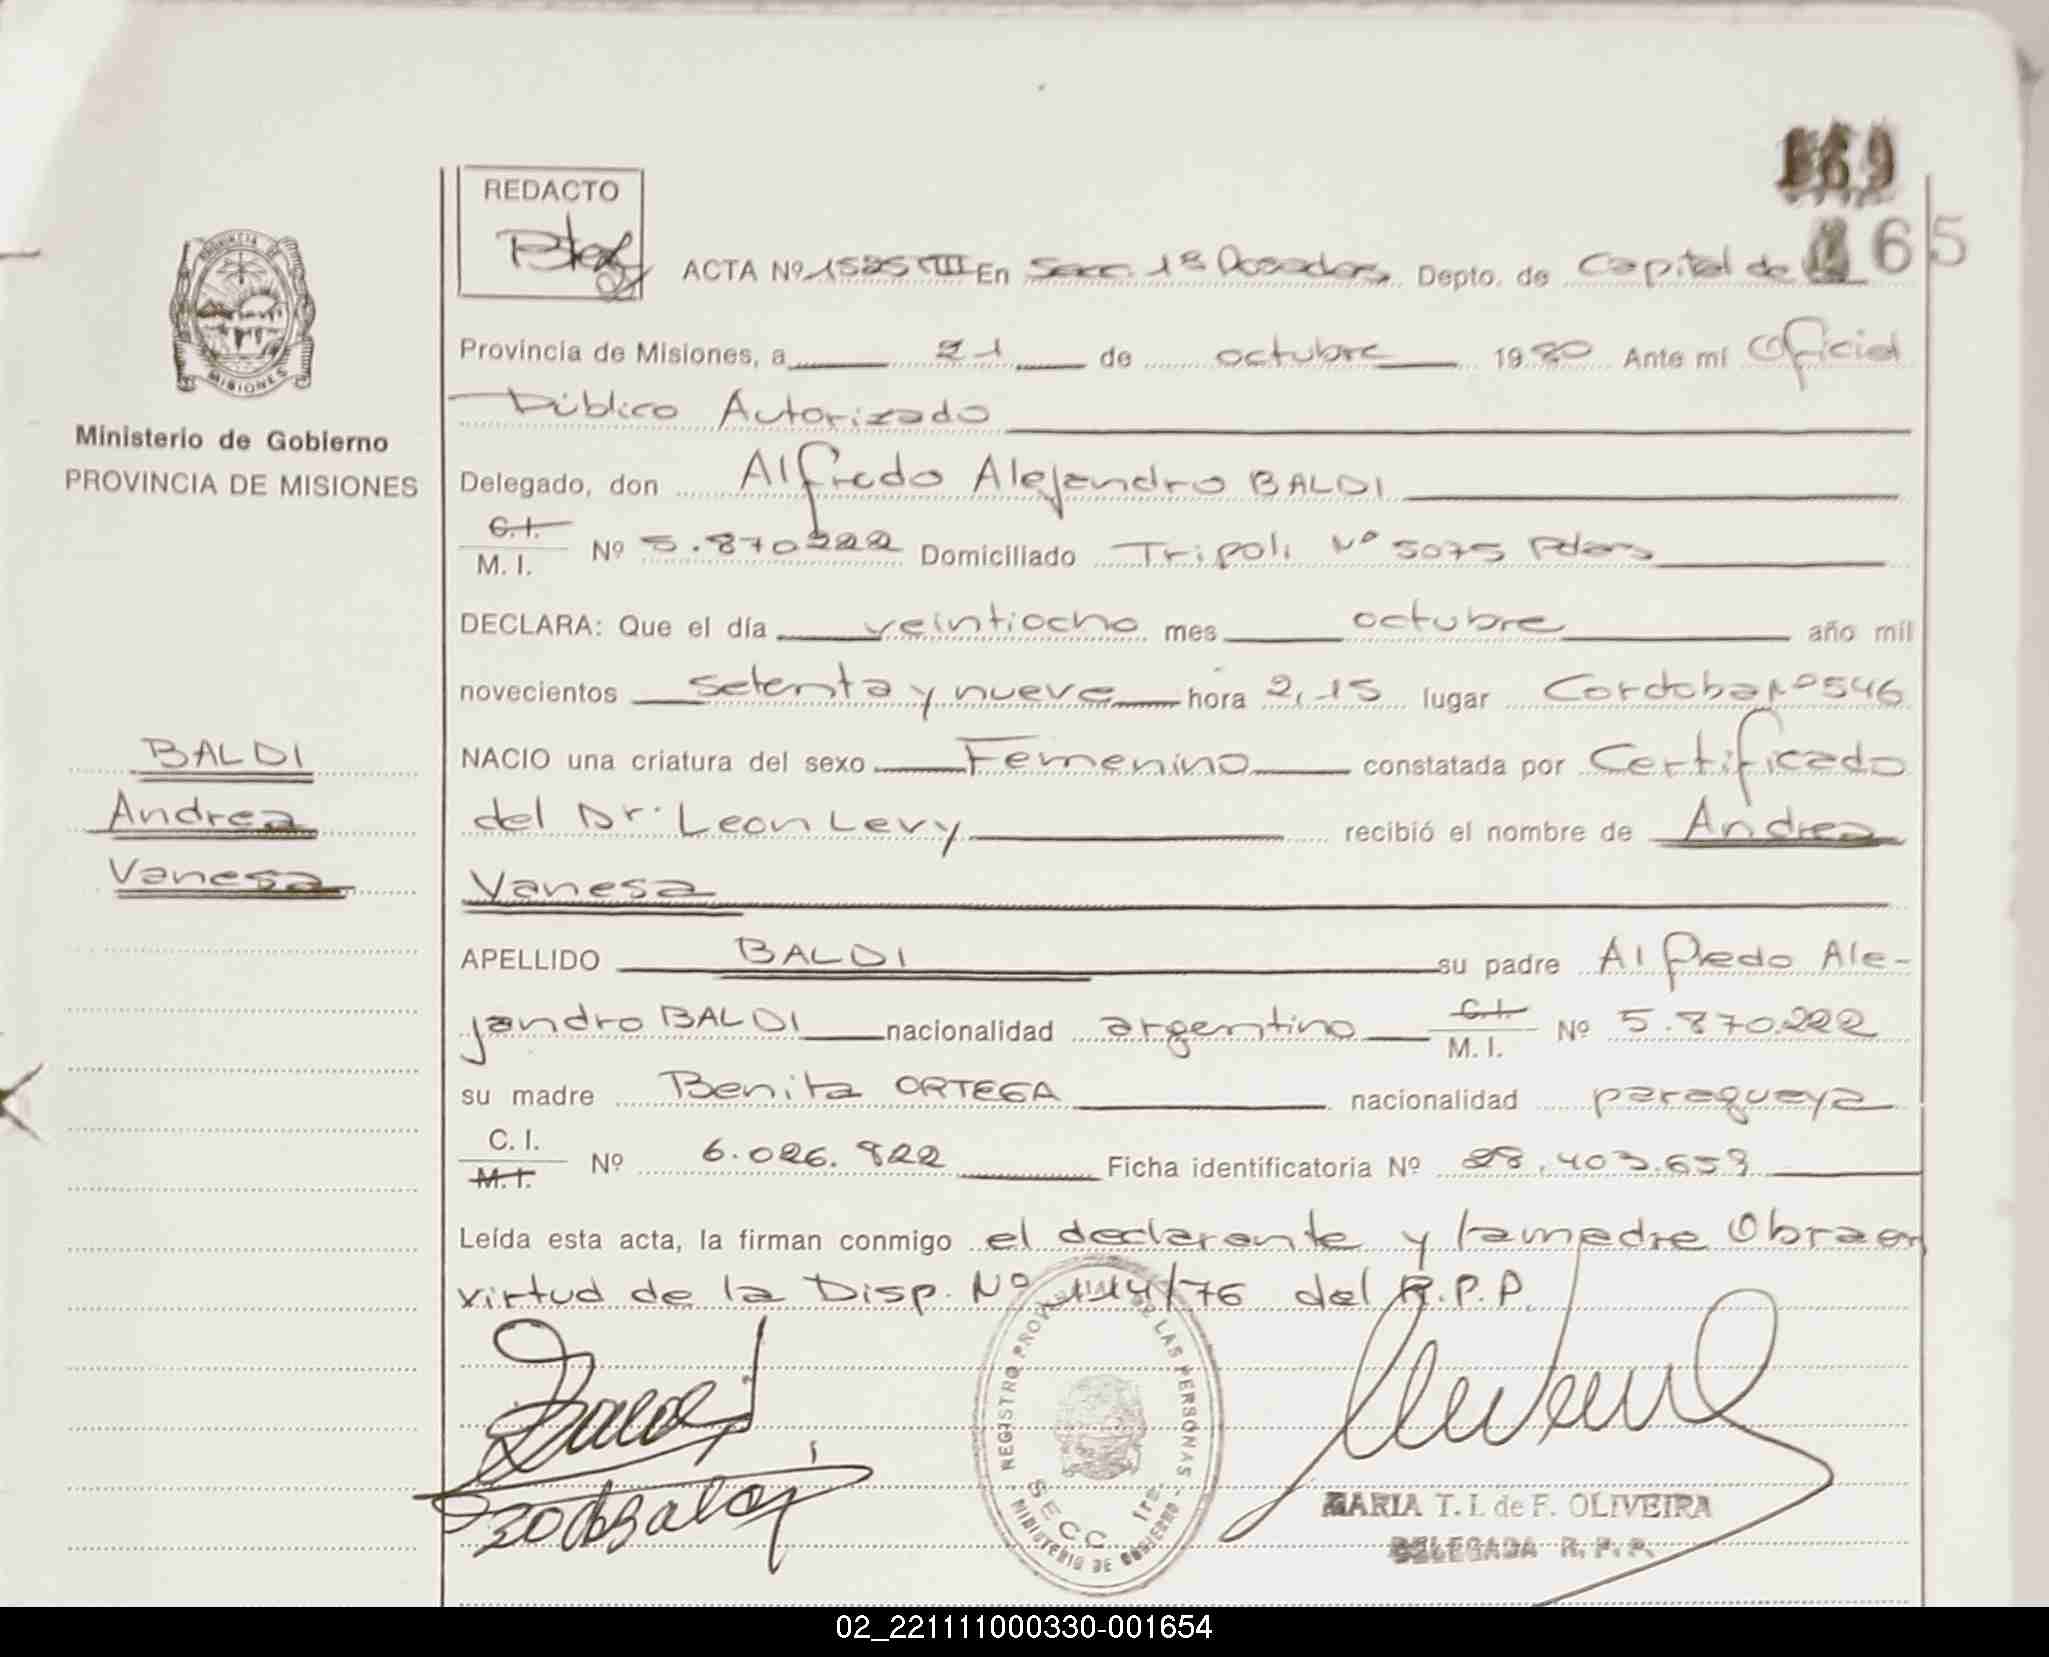 169
REDACTO
165
ACTA Nº 1525 III En Secc. 1ª Posadas Depto. de Capital de la
PROVINCIA DE
MISIONES
Provincia de Misiones, a 21 de octubre 1980 Ante mí Oficial
Público Autorizado
Ministerio de Gobierno
PROVINCIA DE MISIONES
Delegado, don Alfredo Alejandro BALDI
C.I.
M. I. Nº 5.870.222 Domiciliado Tripoli Nº 5075 Pdas
DECLARA: Que el día veintiocho mes octubre año mil
novecientos setenta y nueve hora 2,15 lugar Cordoba Nº 546
BALDI
Andrea
Vanesa
NACIO una criatura del sexo Femenino constatada por Certificado
del Dr. Leon Levy recibió el nombre de Andrea
Vanesa
APELLIDO BALDI su padre Alfredo Ale-
jandro BALDI nacionalidad argentino C.I. M. I. Nº 5.870.222
su madre Benita ORTEGA nacionalidad paraguaya
C. I.
M.I. Nº 6.026.822 Ficha identificatoria Nº 28.403.659
Leída esta acta, la firman conmigo el declarante y la madre Obra en
virtud de la Disp. Nº 114/76 del R.P.P.
REGISTRO PROVINCIAL DE LAS PERSONAS
SECC 1ra.
MINISTERIO DE GOBIERNO
MARIA T. I. de F. OLIVEIRA
DELEGADA R. P. P.
02_221111000330-001654